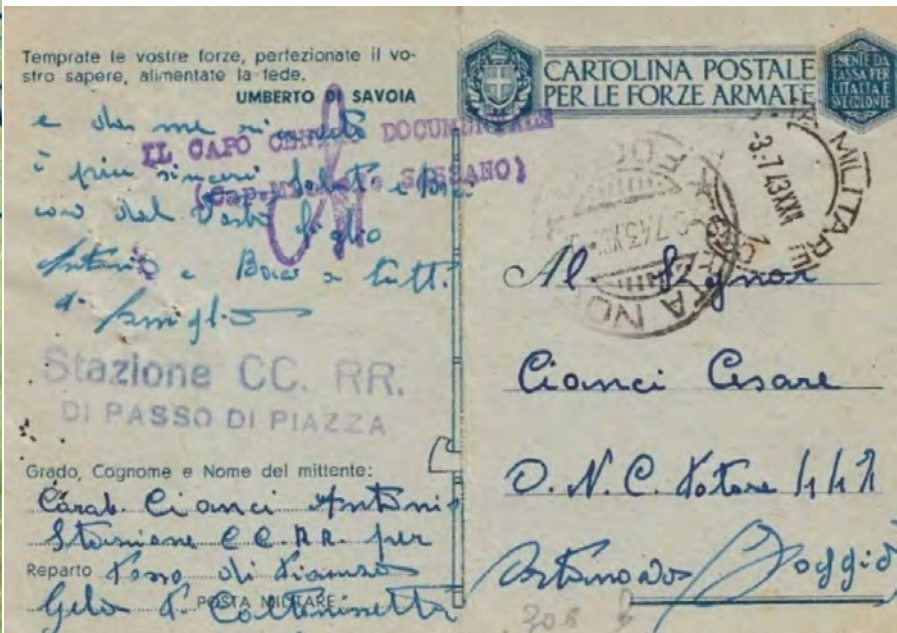 Temprate le vostre forze, perfezionate il vo-
stro sapere, alimentate la fede.
UMBERTO DI SAVOIA
e da me ricevete
i più sinceri saluti e Baci
dal Vostro figlio
Antonio e Baci a tutti
di famiglia
IL CAPO CENTRO DOCUMENTALE
(Cap. SASSANO)
Stazione CC. RR.
DI PASSO DI PIAZZA
Grado, Cognome e Nome del mittente:
Carab. Cianci Antonio
Stazione CC.RR. per
Reparto Passo di Piazza
POSTA MILITARE:
Gela P. Caltanissetta
CARTOLINA POSTALE
PER LE FORZE ARMATE
ESENTE DA
TASSA PER
L'ITALIA E
SUE COLONIE
MILITARE
3.7.43 XXI
Al Signor
Cianci Cesare
O. N. C. Potere
Foggia